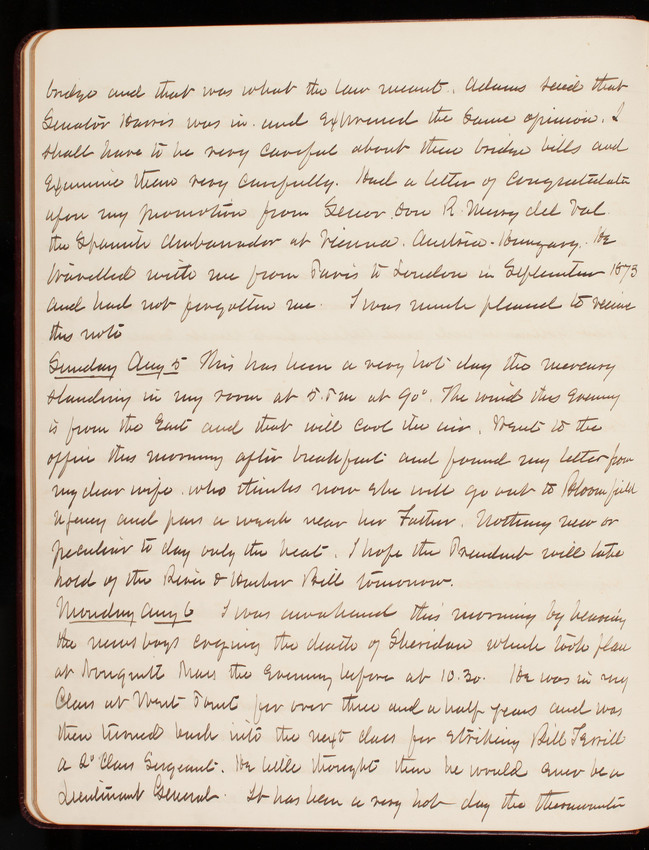 bridge and that was what the law meant. Adams said that
Senator Harris was in and expressed the same opinion. I
shall have to be very careful about these bridge bills and
examine them very carefully. Had a letter of congratulation
upon my promotion from Senor Don R. Merry del Val
the Spanish Ambassador at Vienna. Austria-Hungary. He
travelled with me from Paris to London in September 1873
and had not forgotten me. I was much pleased to receive
this note
Sunday Aug 5 This has been a very hot day the mercury
standing in my room at 5 P.M. at 90°. The wind this evening
is from the East and that will cool the air. Went to the
office this morning after breakfast and found my letter from
my dear wife who thinks now she will go out to Bloomfield
and pass a week near her Father. Nothing new or
peculiar to day only the heat. I hope the President will take
hold of the River & Harbor Bill tomorrow.
Monday Aug 6 I was awakened this morning by hearing
the news boys crying the death of Sheridan which took place
at Nonquitt Mass the evening before at 10.30. He was in my
Class at West Point for over three and a half years and was
then turned back into the next class for striking Bill Terrill
a 2° Class Sergeant. He little thought then he would ever be a
Lieutenant General. It has been a very hot day the thermometer